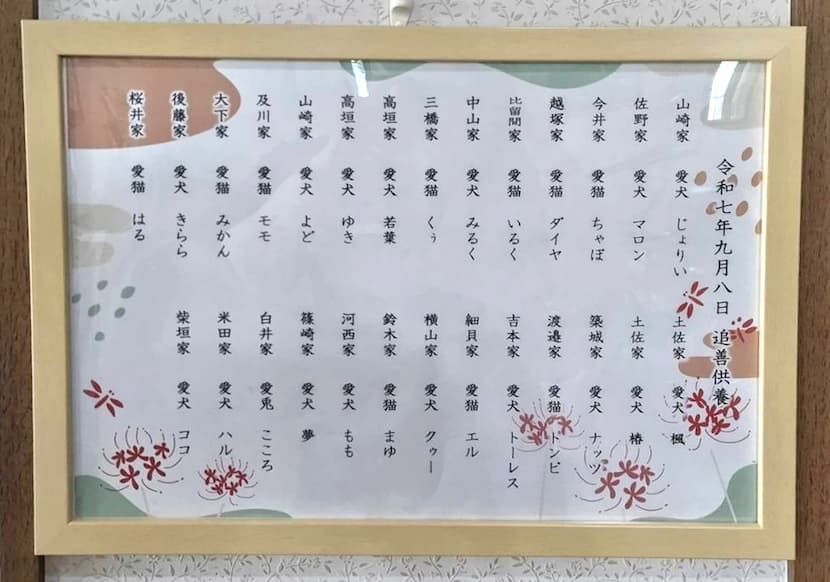 令和七年九月八日 追善供養
山崎家 愛犬 じょりい
佐野家 愛犬 マロン
今井家 愛猫 ちゃぼ
越塚家 愛猫 ダイヤ
比留間家 愛猫 いるく
中山家 愛犬 みるく
三橋家 愛猫 くぅ
高垣家 愛犬 若葉
高垣家 愛犬 ゆき
山崎家 愛犬 よど
及川家 愛猫 モモ
大下家 愛猫 みかん
後藤家 愛犬 きらら
桜井家 愛猫 はる
土佐家 愛犬 楓
土佐家 愛犬 椿
築城家 愛犬 ナッツ
渡邉家 愛猫 トンビ
吉本家 愛犬 トーレス
細貝家 愛猫 エル
横山家 愛犬 クゥー
鈴木家 愛猫 まゆ
河西家 愛犬 もも
篠崎家 愛犬 夢
白井家 愛兎 こころ
米田家 愛犬 ハル
柴垣家 愛犬 ココ